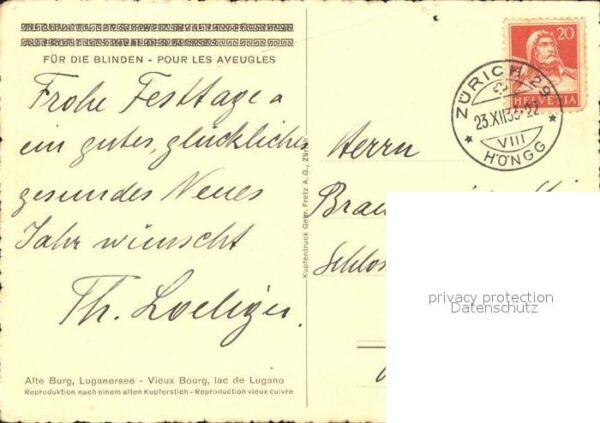 FÜR DIE BLINDEN - POUR LES AVEUGLES
Frohe Festtage &
ein gutes, glückliches
gesundes Neues
Jahr wünscht
Th. Loeliger.
Alte Burg, Luganersee - Vieux Bourg, lac de Lugano
Reproduktion nach einem alten Kupferstich - Reproduction vieux cuivre
Kupferdruck Gebr. Fretz A. G., Zürich
20
HELVETIA
ZÜRICH 29
23.XII.33-22
VIII
HÖNGG
Herrn
Schlos
privacy protection
Datenschutz